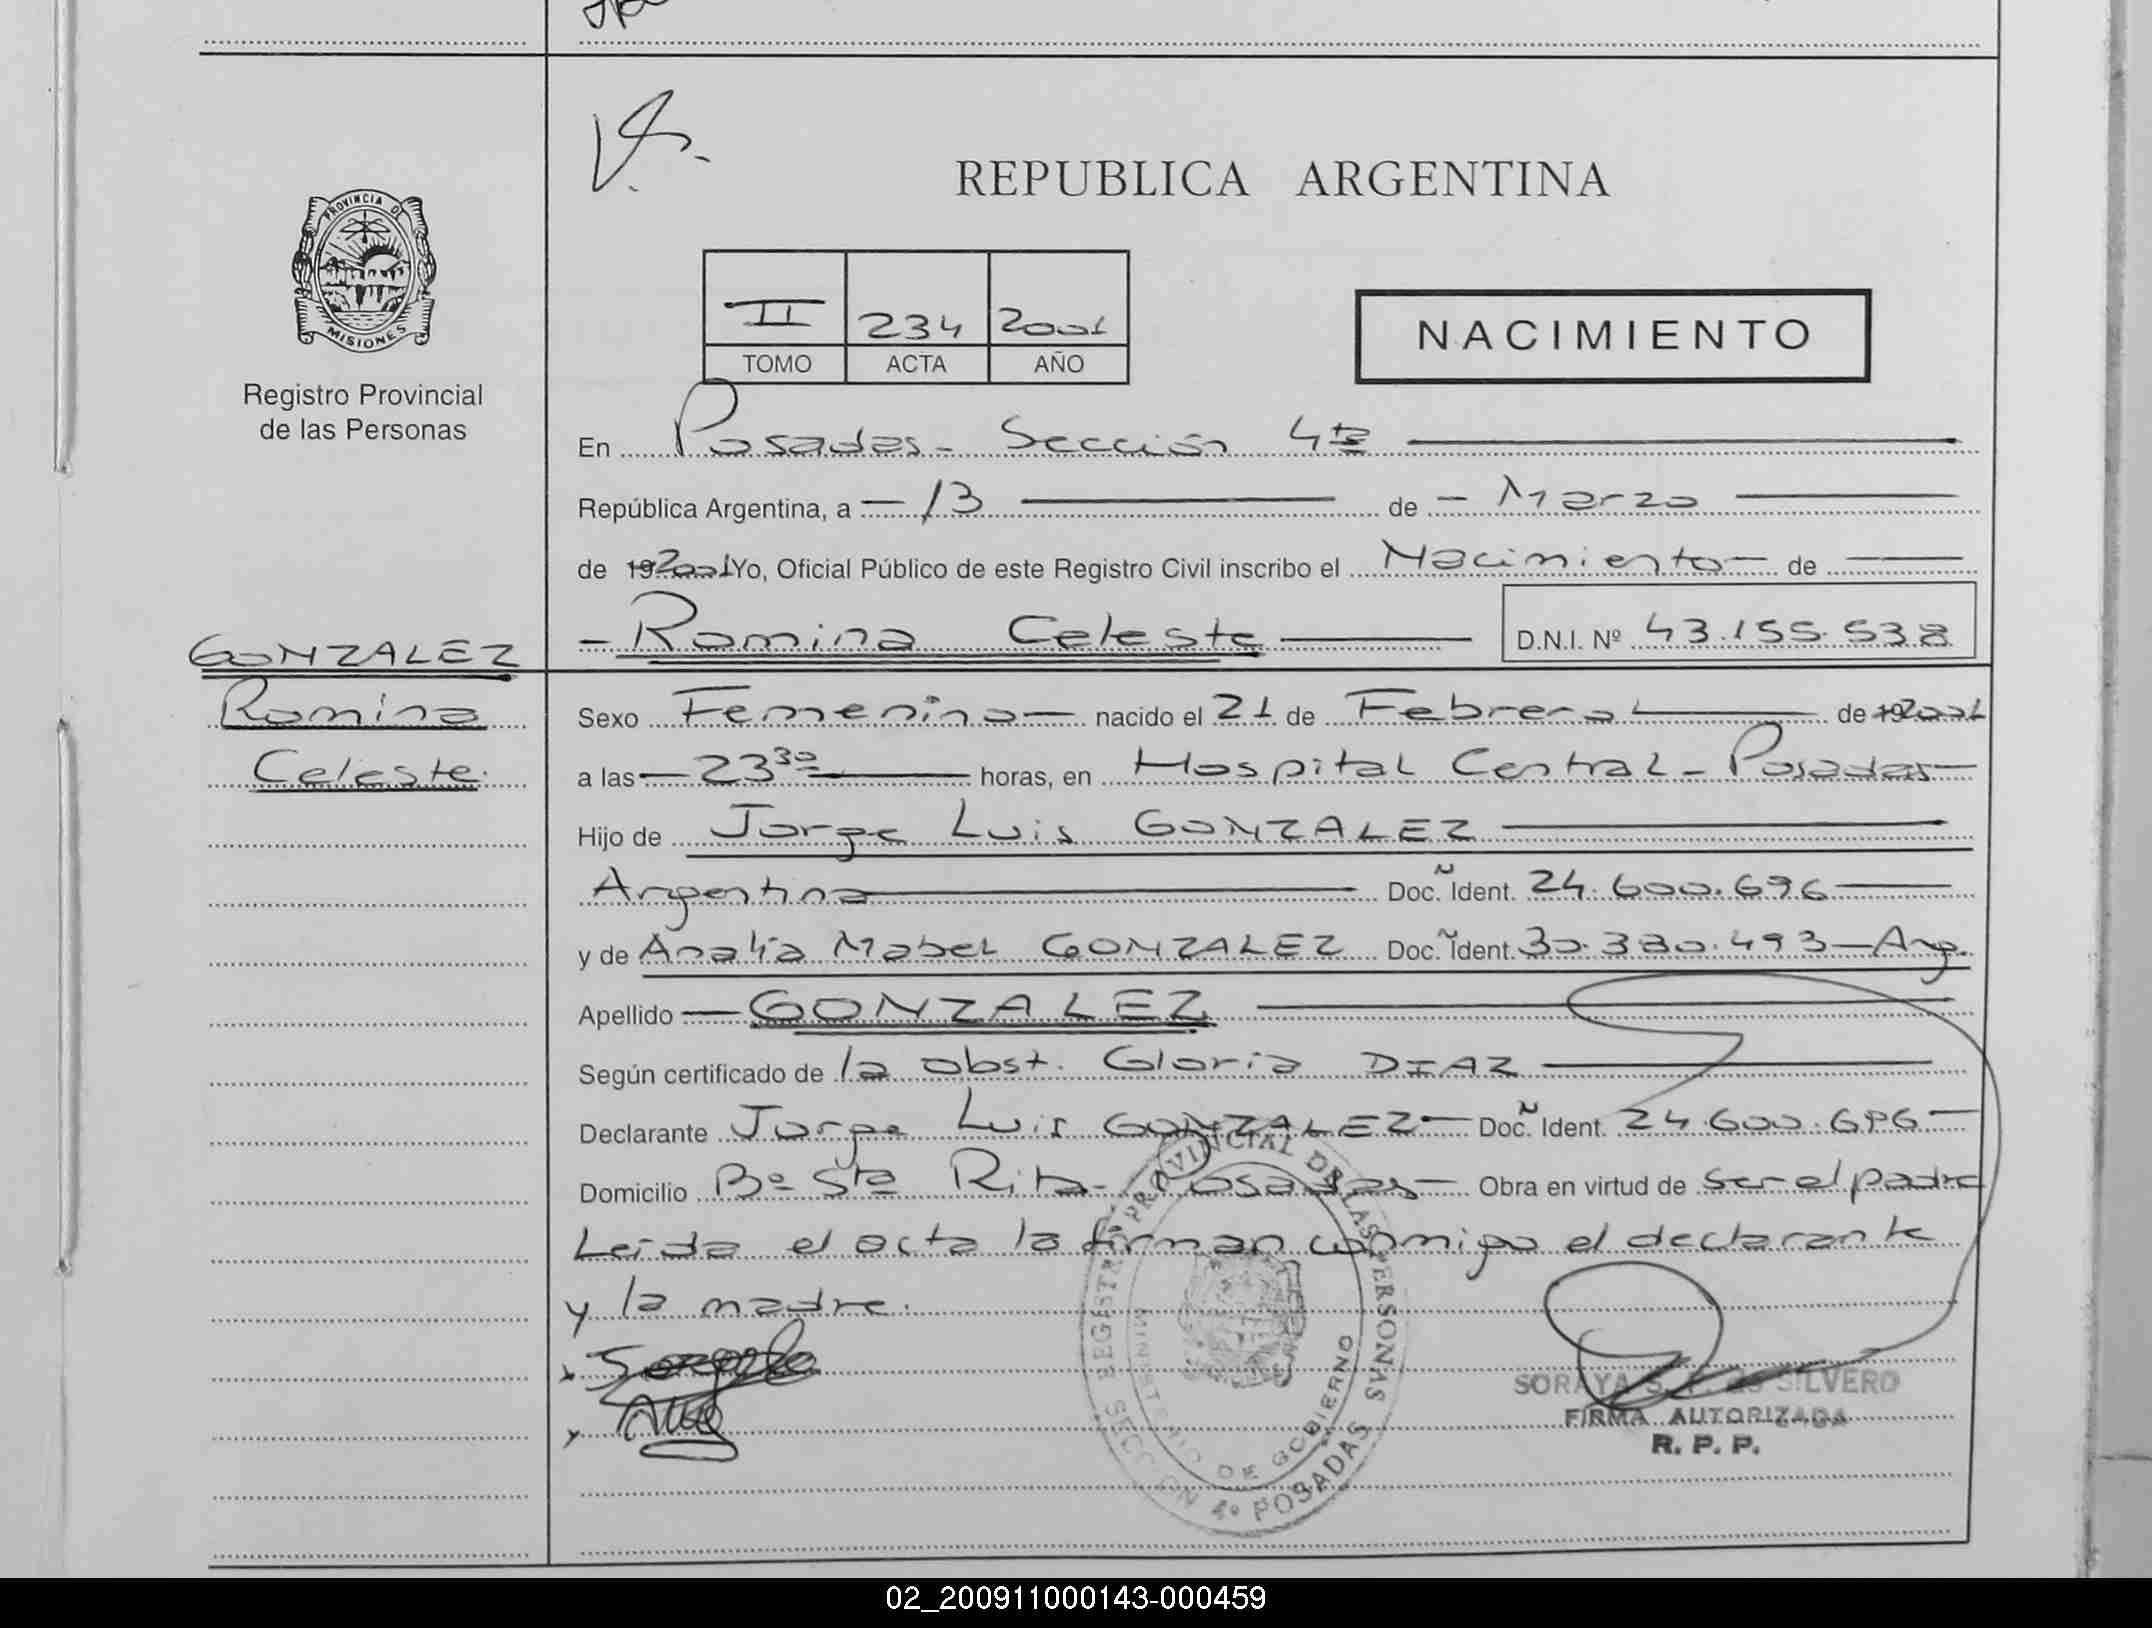 REPUBLICA ARGENTINA
PROVINCIA DE
MISIONES
Registro Provincial
de las Personas
II 234 2001
TOMO ACTA AÑO
NACIMIENTO
En Posadas - Sección 4ta
República Argentina, a - 13 de - Marzo
de 192001 Yo, Oficial Público de este Registro Civil inscribo el Nacimiento de
- Romina Celeste D.N.I. Nº 43.155.538
GONZALEZ
Romina
Celeste
Sexo Femenino nacido el 21 de Febrero de 192001
a las 23 30 horas, en Hospital Central - Posadas
Hijo de Jorge Luis GONZALEZ
Argentino Doc. Ident. 24.600.696
y de Analía Mabel GONZALEZ Doc. Ident. 30.380.493 - Arg.
Apellido - GONZALEZ
Según certificado de la obst. Gloria DIAZ
Declarante Jorge Luis GONZALEZ - Doc. Ident. 24.600.696
Domicilio Bº Sta Rita - Posadas - Obra en virtud de ser el padre
Leída el acta la firman conmigo el declarante
y la madre.
REGISTRO PROVINCIAL DE LAS PERSONAS
MINISTERIO DE GOBIERNO
SECCION 4º POSADAS
SORAYA S. F. de SILVERO
FIRMA AUTORIZADA
R. P. P.
02_200911000143-000459